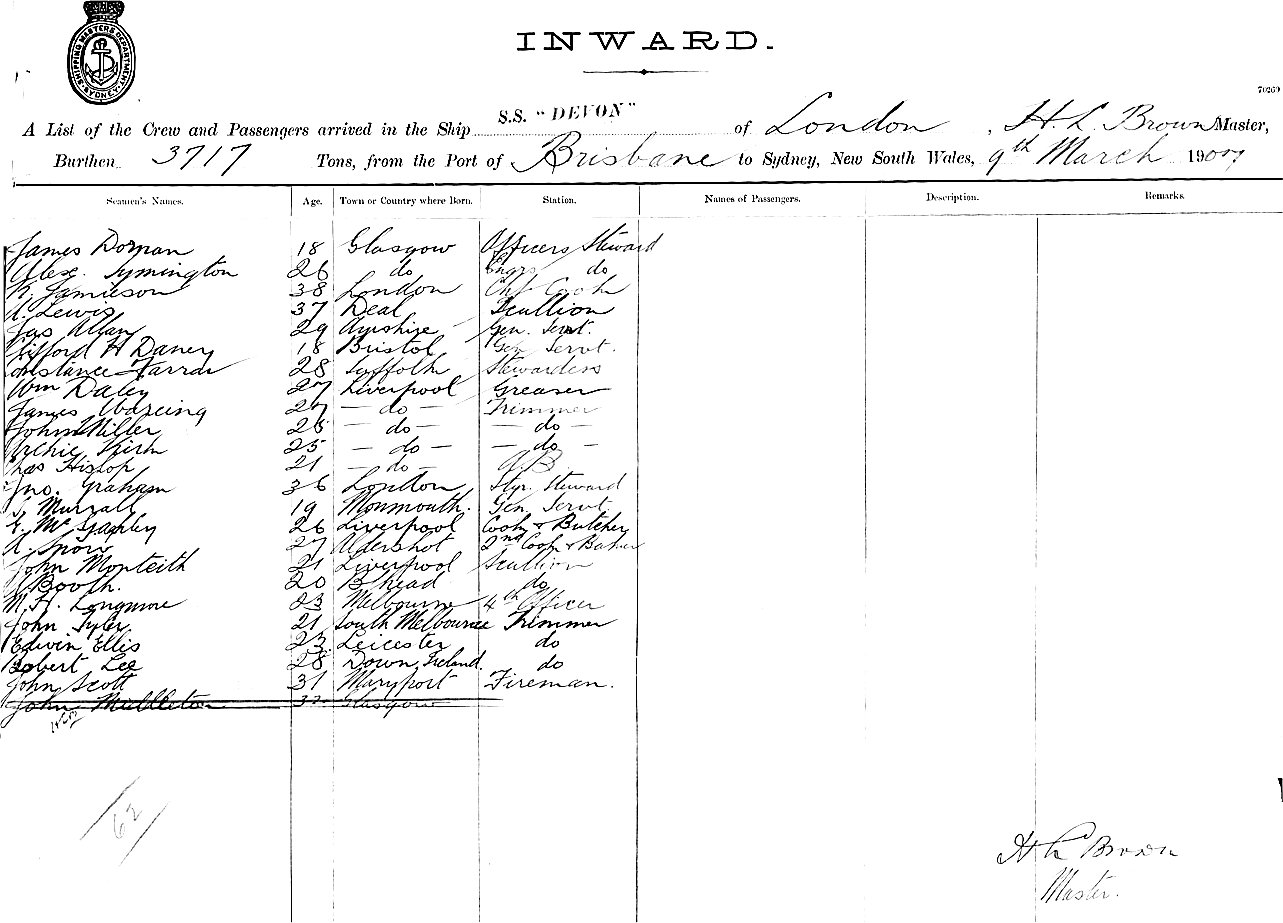 SHIPPING MASTERS DEPARTMENT
SYDNEY
INWARD.
70269
A List of the Crew and Passengers arrived in the Ship S.S. "DEVON" of London, H. L. Brown Master,
Burthen 3717 Tons, from the Port of Brisbane to Sydney, New South Wales, 9th March 1907
Seamen's Names. Age. Town or Country where Born. Station. Names of Passengers. Description. Remarks.
James Dornan 18 Glasgow Officers Steward
Alex. Symington 26 do Engrs do
Jamieson 38 London Chf Cook
Lewis 37 Deal Scullion
Jas Allan 29 Ayrshire Gen. Servt.
Clifford H Daney 18 Bristol Gen Servt.
Constance Farrar 28 Suffolk Stewardess
Wm Daley 27 Liverpool Greaser
James Wareing 27 - do - Trimmer
John Miller 26 - do - - do -
Archie Kirk 25 - do - - do -
Chas Hislop 21 - do - A.B
Jno. Graham 36 London Str. Steward
Murrall 19 Monmouth. Gen. Servt
E. 26 Liverpool Cook & Butcher
Snow 27 Aldershot 2nd Cook & Baker
John Monteith 21 Liverpool Scullion
Booth. 20 B'head do
M. H. Longmore 23 Melbourne 4th Officer
John Tyler. 21 South Melbourne Trimmer
Edwin Ellis 23 Leicester do
Robert Lee 28 Down, Ireland. do
John Scott 31 Maryport Fireman.
John Middleton 32 Glasgow
62
H L Brown
Master.